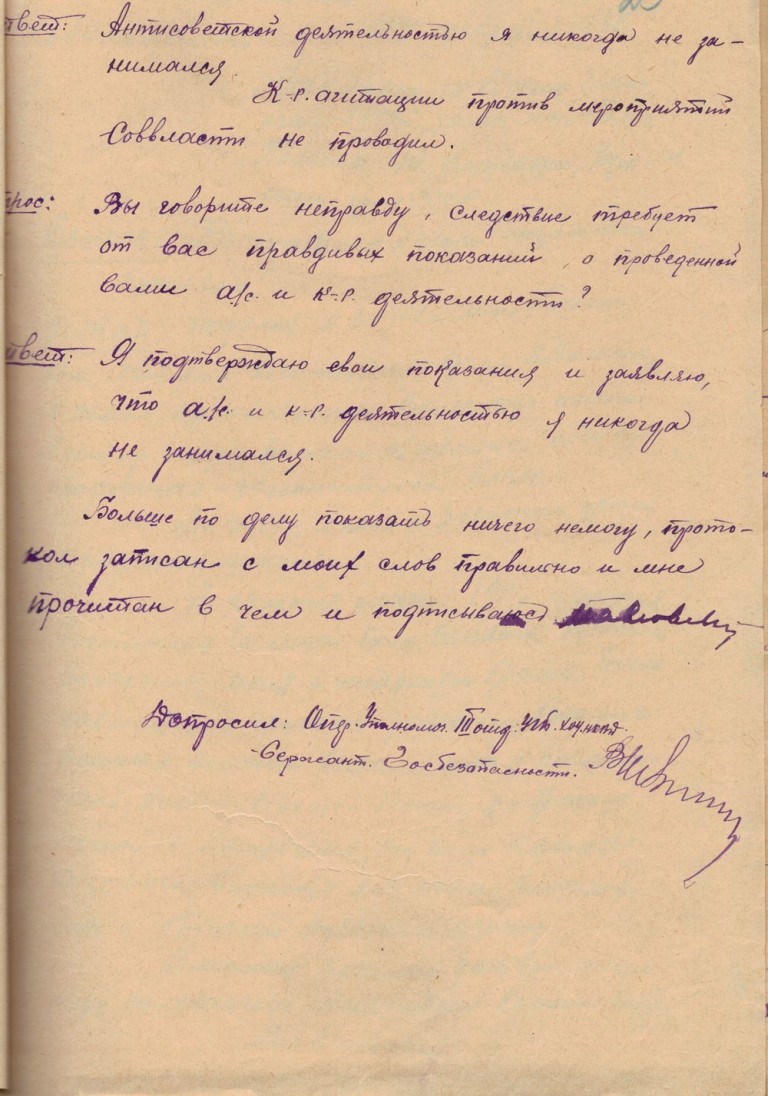 твет: Антисоветской деятельностью я никогда не за-
нимался.
К-р. агитации против мероприятий
Соввласти не проводил.
прос: Вы говорите неправду, следствие требует
от вас правдивых показаний, о проведенной
вами а/с. и к-р. деятельности?
твет: Я подтверждаю свои показания и заявляю,
что а/с. и к-р. деятельностью я никогда
не занимался.
Больше по делу показать ничего немогу, прото-
кол записан с моих слов правильно и мне
прочитан в чем и подписываюсь
Допросил: Опер. Уполномоч. III отд. УГБ. ХОУ НКВД.
Сержант. Госбезопасности.